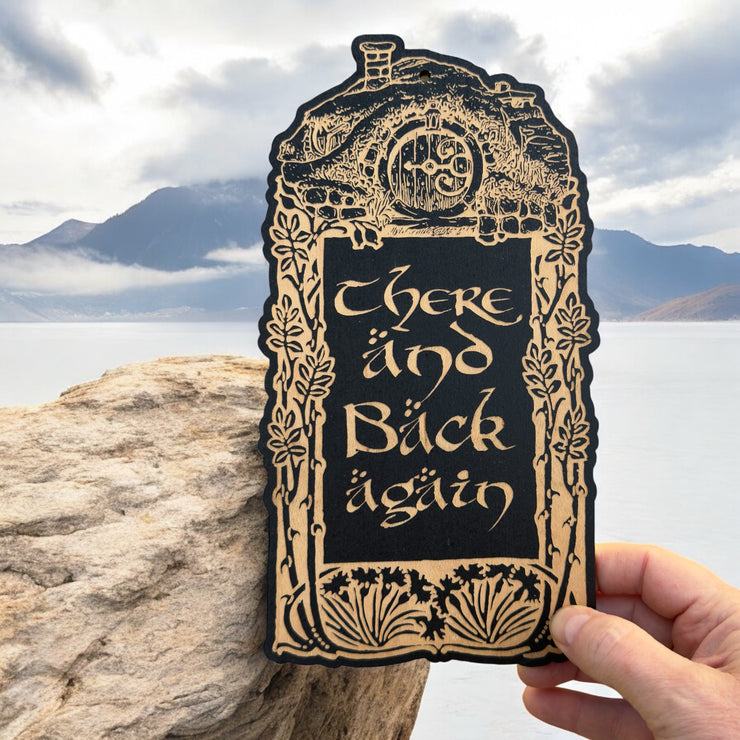 There
and
Back
again